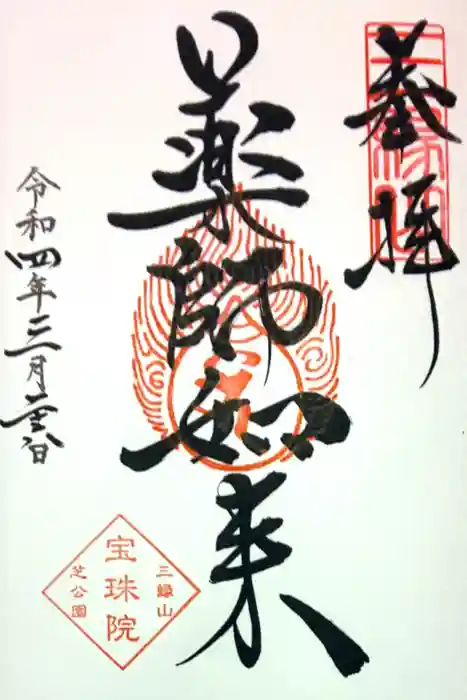 奉拝
三縁山
薬師如来
令和四年三月二十八日
三縁山
宝珠院
芝公園